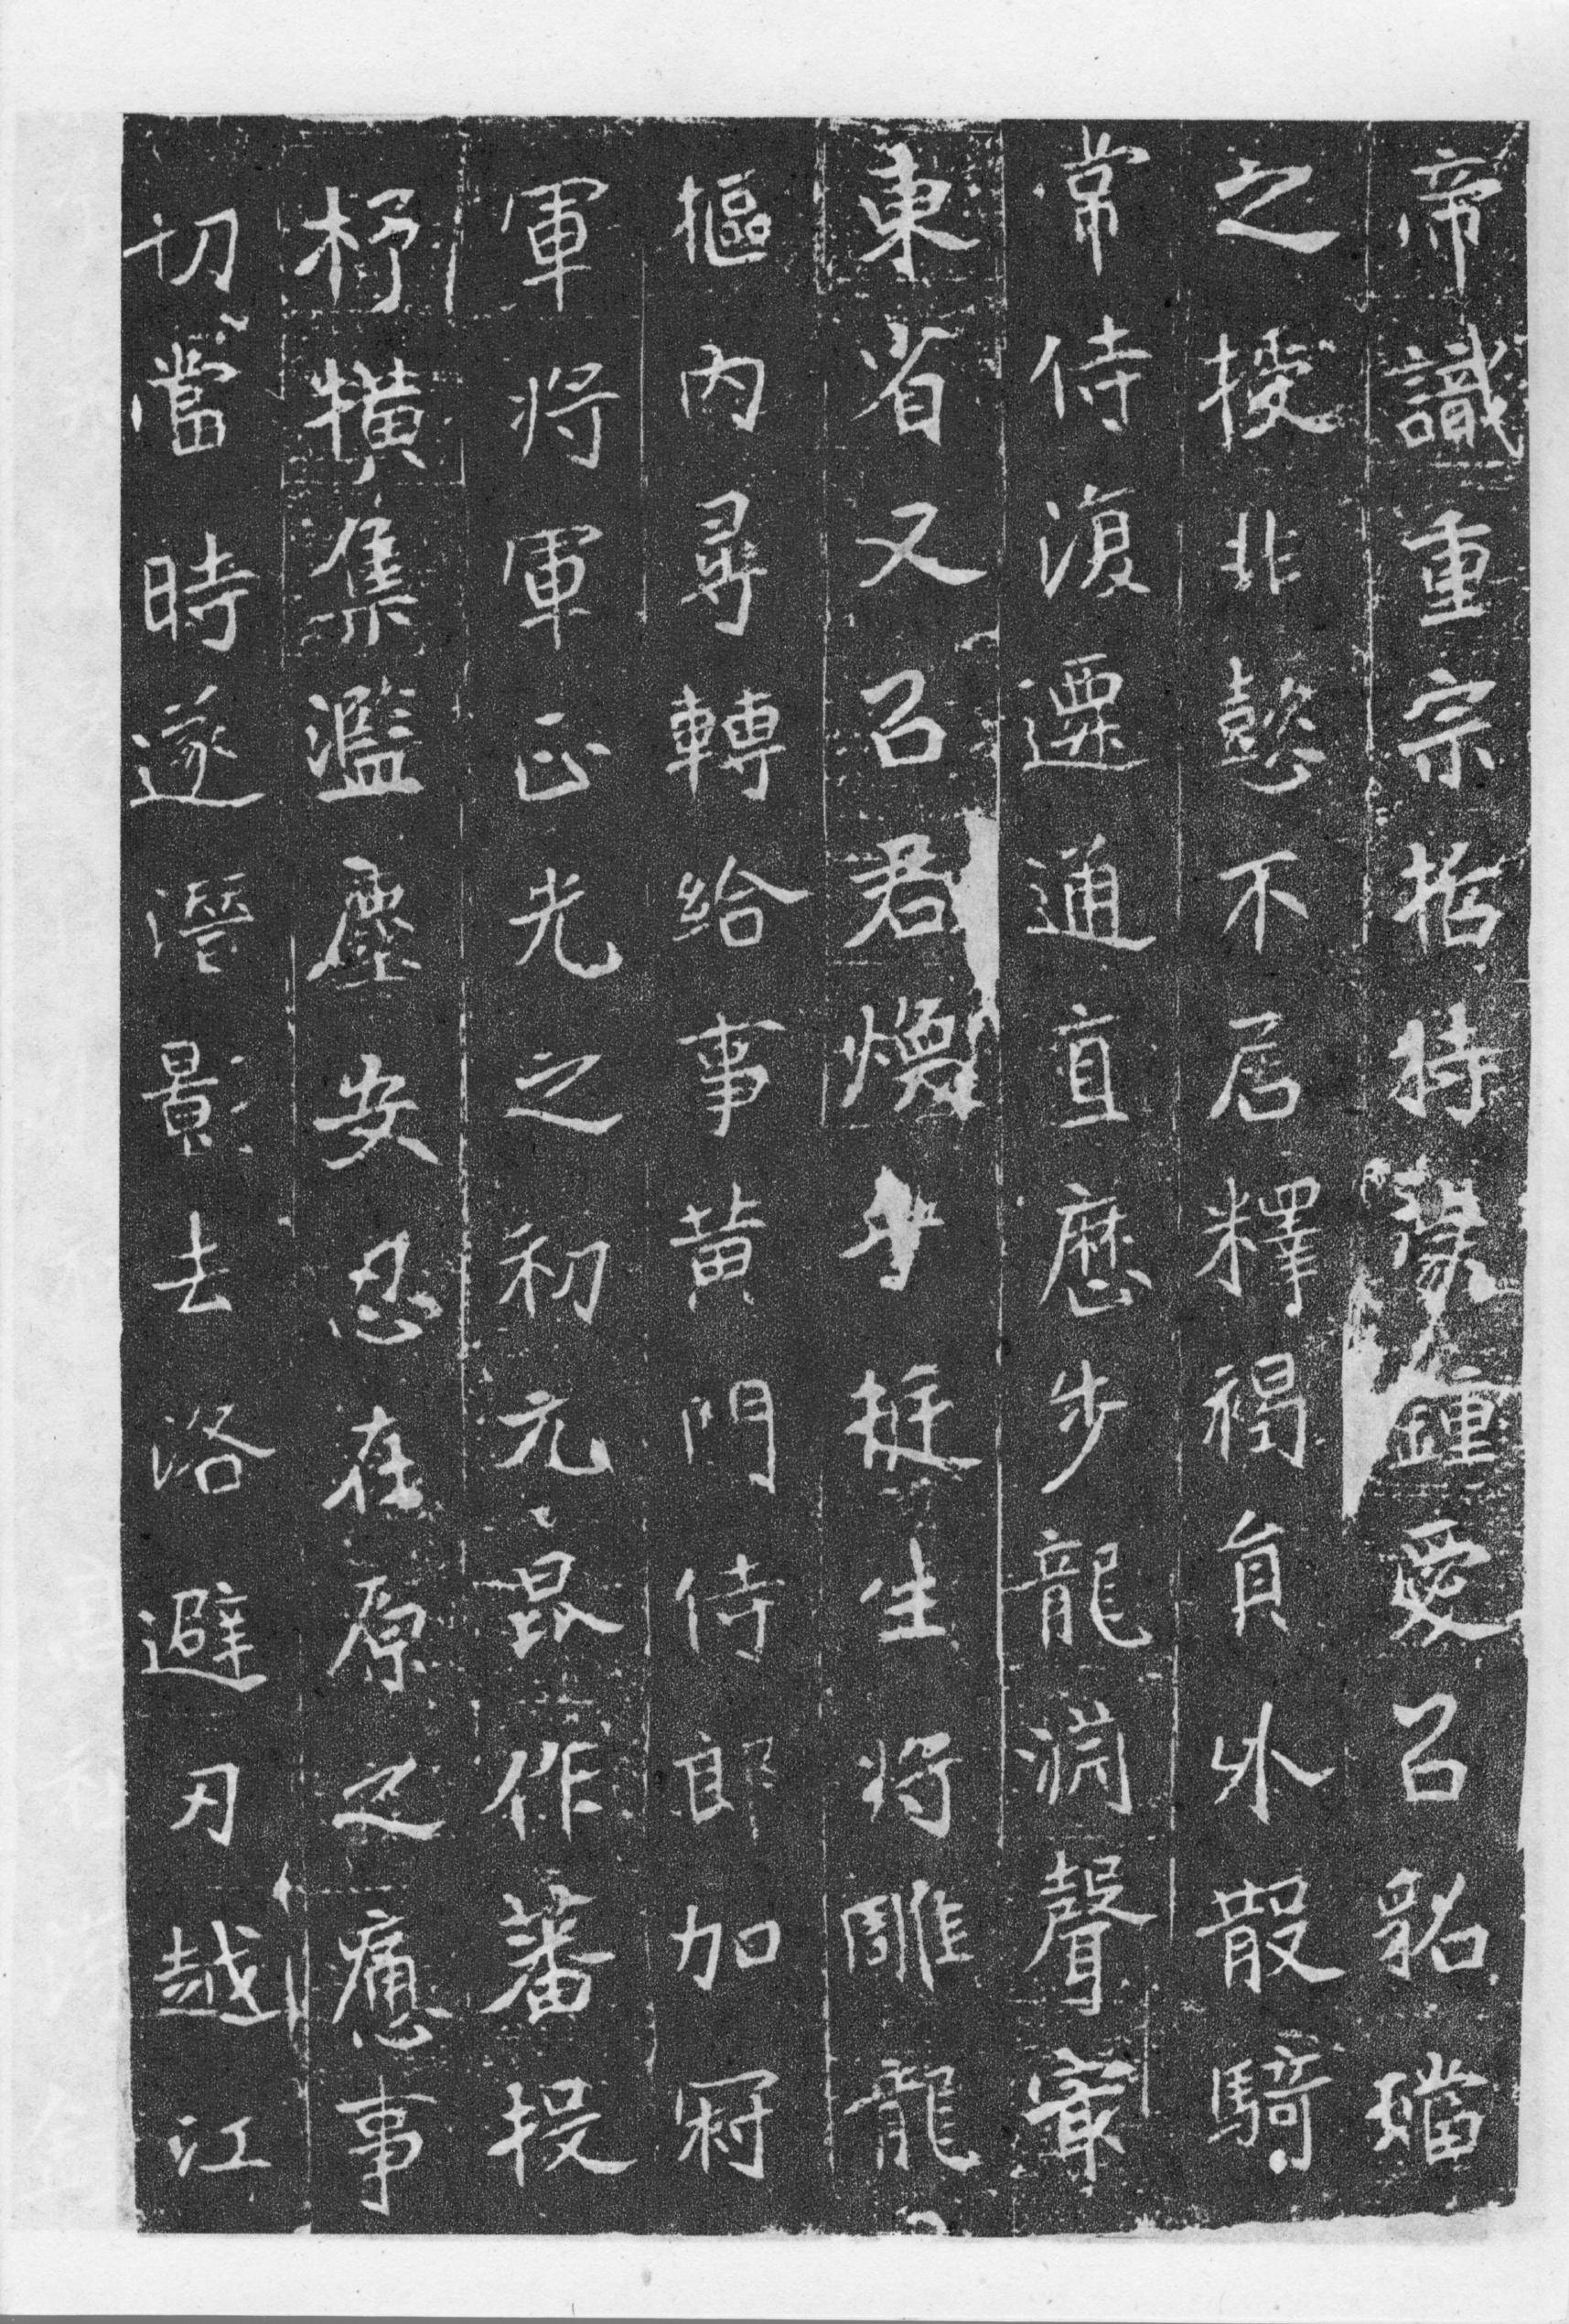 帝識重宗哲特蒙鍾愛召貂璫
之授非懿不居釋褐員外散騎
常侍復遷通直歷步龍淵聲最
東省又召君煥牙挺生將雕龍
樞內尋轉給事黃門侍郎加冠
軍將軍正光之初元昆作蕃投
杼橫集濫塵安忍在原之痛事
切當時遂潛影去洛避刃越江